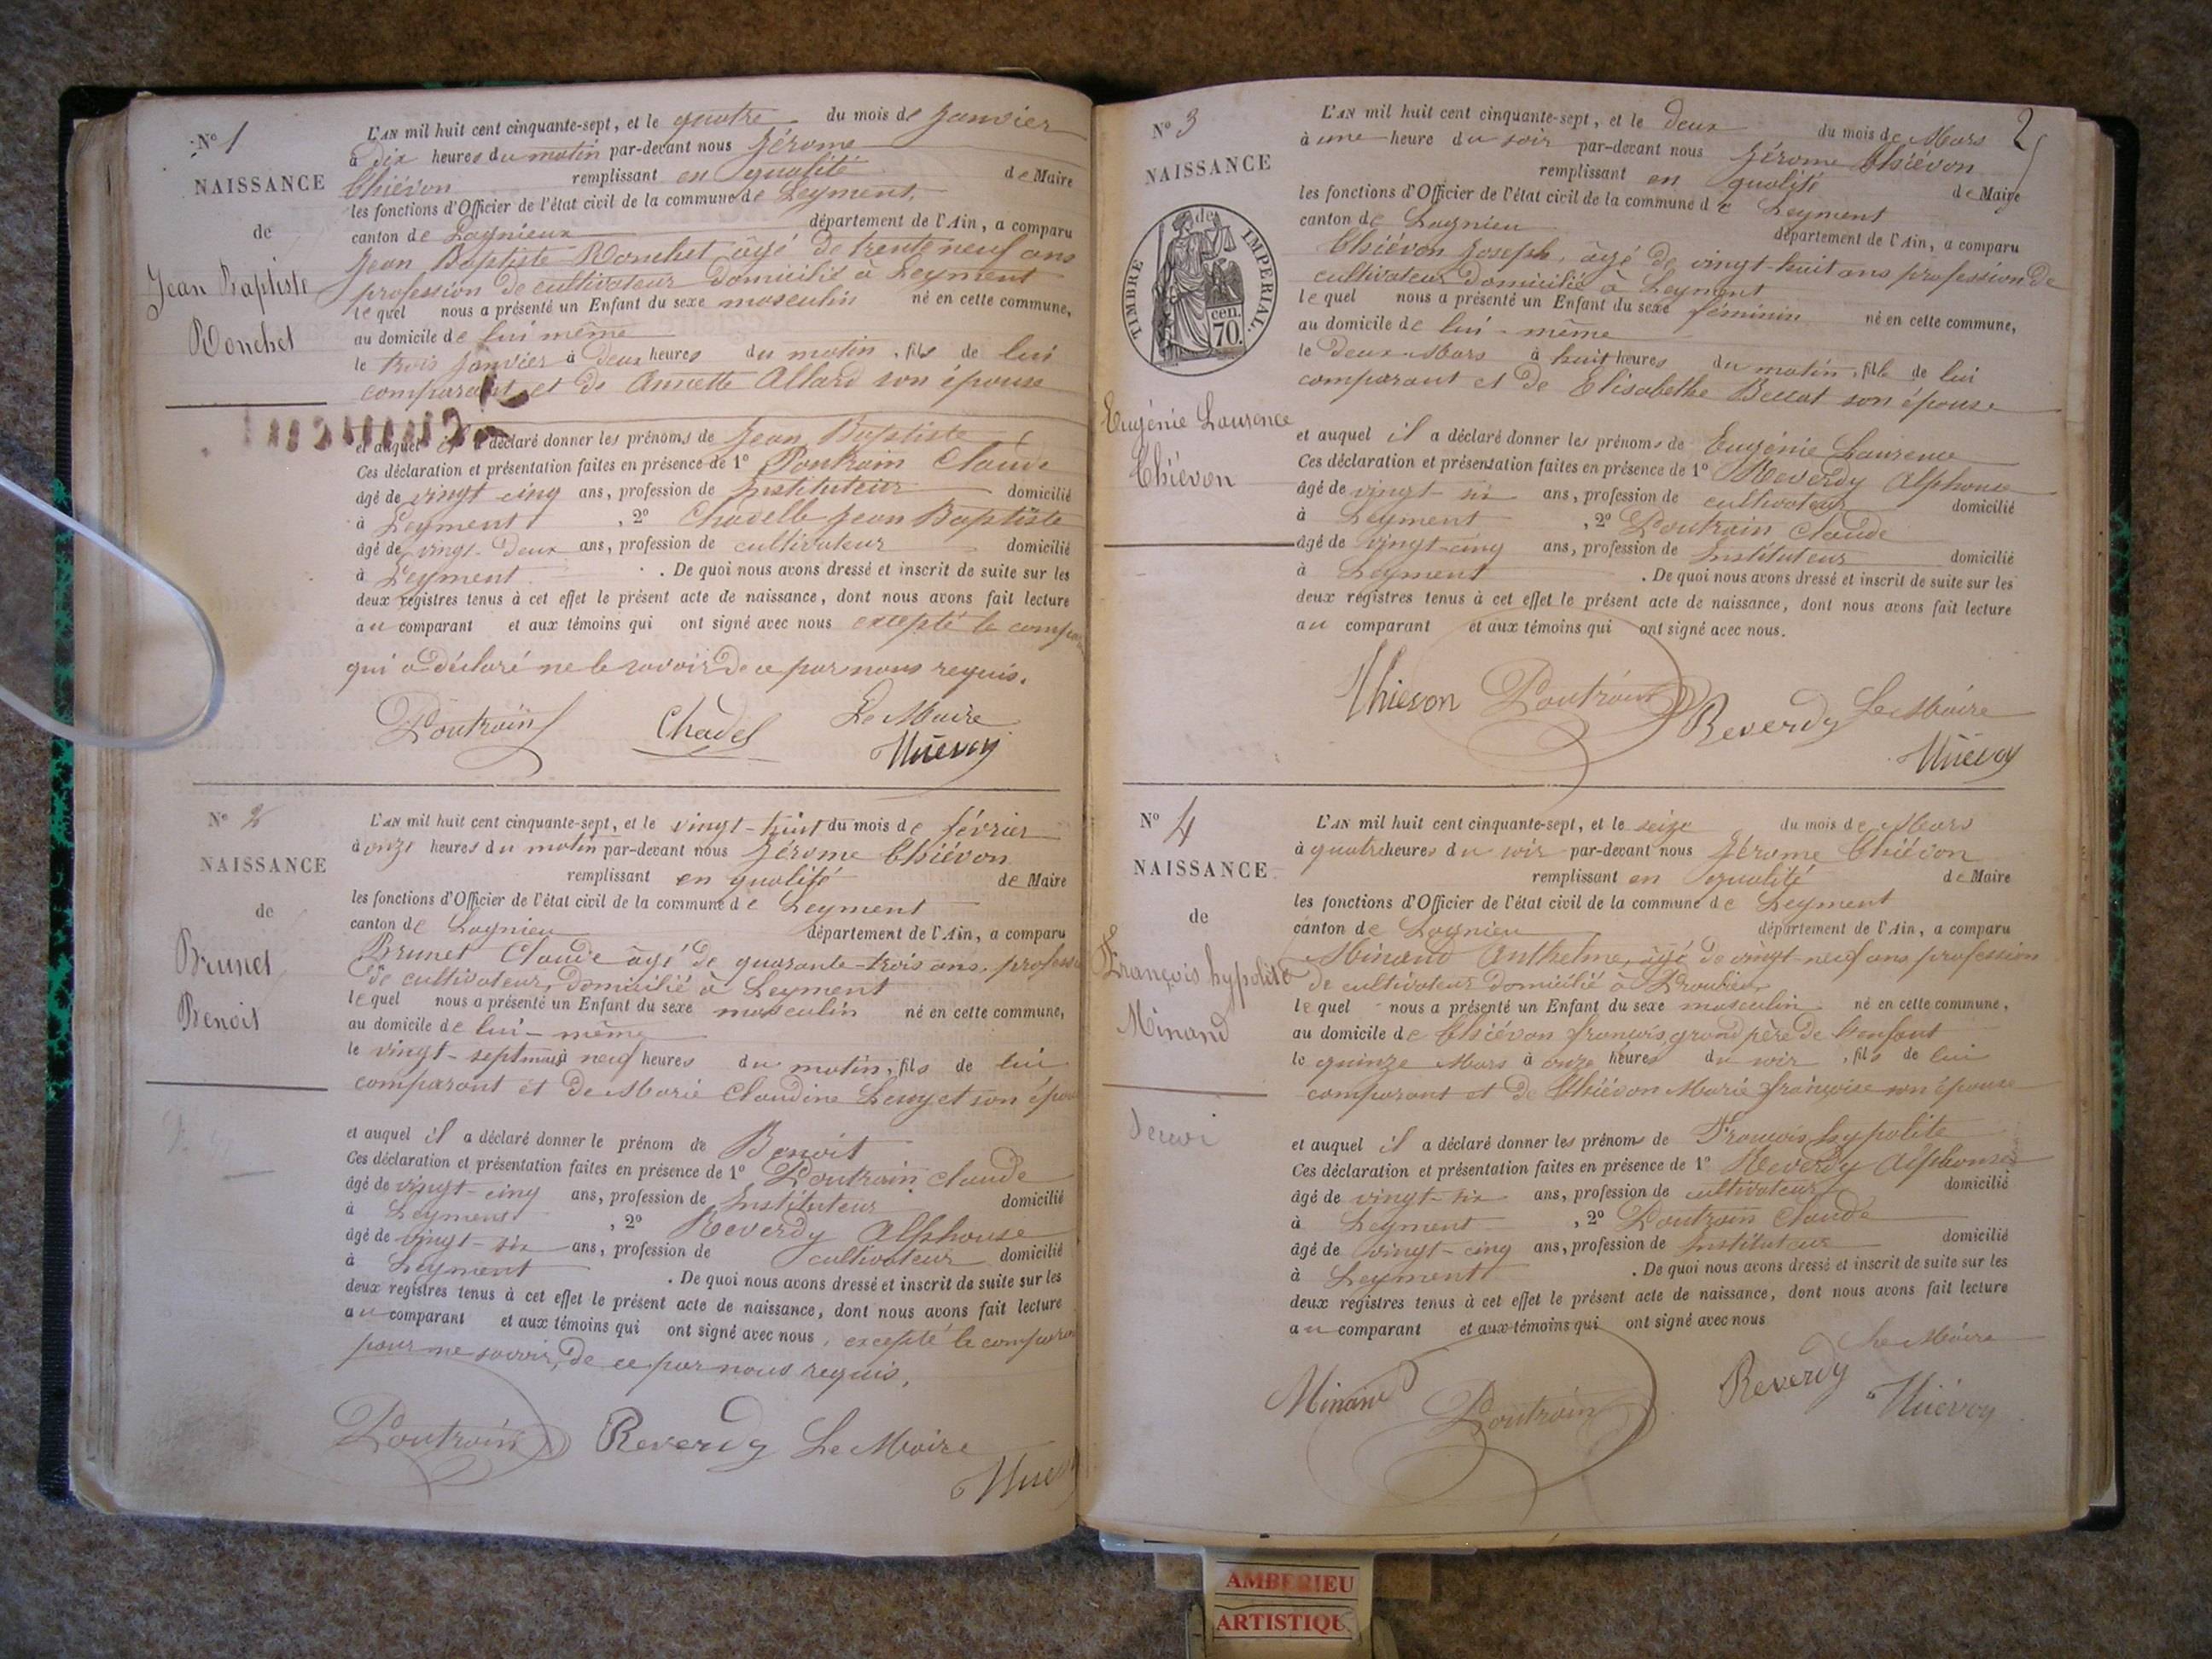 N° 1
NAISSANCE
de
Jean Baptiste
Ronchet
L'AN mil huit cent cinquante-sept, et le quatre du mois de Janvier
à dix heures du matin par-devant nous Jérome
Chiévon remplissant en qualité de Maire
les fonctions d'Officier de l'état civil de la commune de Leyment,
canton de Lagnieux département de l'Ain, a comparu
Jean Baptiste Ronchet âgé de trente neuf ans
profession de cultivateur domicilié à Leyment
lequel nous a présenté un Enfant du sexe masculin né en cette commune,
au domicile de lui même
le trois Janvier à deux heures du matin, fils de lui
comparant et de Annette Allard son épouse
et auquel il a déclaré donner les prénoms de Jean Baptiste
Ces déclaration et présentation faites en présence de 1° Poutrain Claude
âgé de vingt cinq ans, profession de Instituteur domicilié
à Leyment, 2° Chadelle Jean Baptiste
âgé de vingt-deux ans, profession de cultivateur domicilié
à Leyment. De quoi nous avons dressé et inscrit de suite sur les
deux registres tenus à cet effet le présent acte de naissance, dont nous avons fait lecture
au comparant et aux témoins qui ont signé avec nous excepté le
qui a déclaré ne le savoir de ce par nous requis.
Poutrain Chadel Le Maire
N° 2
NAISSANCE
de
Brunet
Benoit
L'AN mil huit cent cinquante-sept, et le vingt-huit du mois de février
à onze heures du matin par-devant nous Jérome Chiévon
remplissant en qualité de Maire
les fonctions d'Officier de l'état civil de la commune de Leyment
canton de Lagnieu département de l'Ain, a comparu
Brunet Claude âgé de quarante-trois ans,
de cultivateur, domicilié à Leyment
lequel nous a présenté un Enfant du sexe masculin né en cette commune,
au domicile de lui-même
le vingt-sept à neuf heures du matin, fils de lui
comparant et de Marie Claudine son
et auquel il a déclaré donner le prénom de Benoit
Ces déclaration et présentation faites en présence de 1° Poutrain Claude
âgé de vingt-cinq ans, profession de Instituteur domicilié
à Leyment, 2° Reverdy Alphonse
âgé de vingt-six ans, profession de cultivateur domicilié
à Leyment. De quoi nous avons dressé et inscrit de suite sur les
deux registres tenus à cet effet le présent acte de naissance, dont nous avons fait lecture
au comparant et aux témoins qui ont signé avec nous, excepté le
pour ne savoir, de ce par nous requis,
Poutrain Reverdy Le Maire
2
N° 3
NAISSANCE
de
TIMBRE IMPERIAL
70. cen.
Eugénie Laurence
Chiévon
L'AN mil huit cent cinquante-sept, et le deux du mois de Mars
à une heure du soir par-devant nous Jérome Chiévon
remplissant en qualité de Maire
les fonctions d'Officier de l'état civil de la commune de Leyment
canton de Lagnieu département de l'Ain, a comparu
Chiévon Joseph, âgé de vingt-huit ans profession de
cultivateur domicilié à Leyment
lequel nous a présenté un Enfant du sexe féminin né en cette commune,
au domicile de lui-même
le deux Mars à huit heures du matin, fille de lui
comparant et de Elisabethe Bellat son épouse
et auquel il a déclaré donner les prénoms de Eugénie Laurence
Ces déclaration et présentation faites en présence de 1° Reverdy Alphonse
âgé de vingt-six ans, profession de cultivateur domicilié
à Leyment, 2° Poutrain Claude
âgé de vingt-cinq ans, profession de Instituteur domicilié
à Leyment. De quoi nous avons dressé et inscrit de suite sur les
deux registres tenus à cet effet le présent acte de naissance, dont nous avons fait lecture
au comparant et aux témoins qui ont signé avec nous.
Poutrain Reverdy Le Maire
N° 4
NAISSANCE
de
François hypolite
Minand
L'AN mil huit cent cinquante-sept, et le seize du mois de Mars
à quatre heures du soir par-devant nous Jérome Chiévon
remplissant en qualité de Maire
les fonctions d'Officier de l'état civil de la commune de Leyment
canton de Lagnieu département de l'Ain, a comparu
Minand Anthelme, âgé de vingt-neuf ans profession
de cultivateur domicilié à
lequel nous a présenté un Enfant du sexe masculin né en cette commune,
au domicile de Chiévon françois grand père de l'enfant
le quinze Mars à onze heures du soir, fils de lui
comparant et de Chiévon Marie françoise son épouse
et auquel il a déclaré donner les prénoms de François hypolite
Ces déclaration et présentation faites en présence de 1° Reverdy Alphonse
âgé de vingt-six ans, profession de cultivateur domicilié
à Leyment, 2° Poutrain Claude
âgé de vingt-cinq ans, profession de Instituteur domicilié
à Leyment. De quoi nous avons dressé et inscrit de suite sur les
deux registres tenus à cet effet le présent acte de naissance, dont nous avons fait lecture
au comparant et aux témoins qui ont signé avec nous
Minand Poutrain Reverdy Le Maire
AMBERIEU
ARTISTIQUE